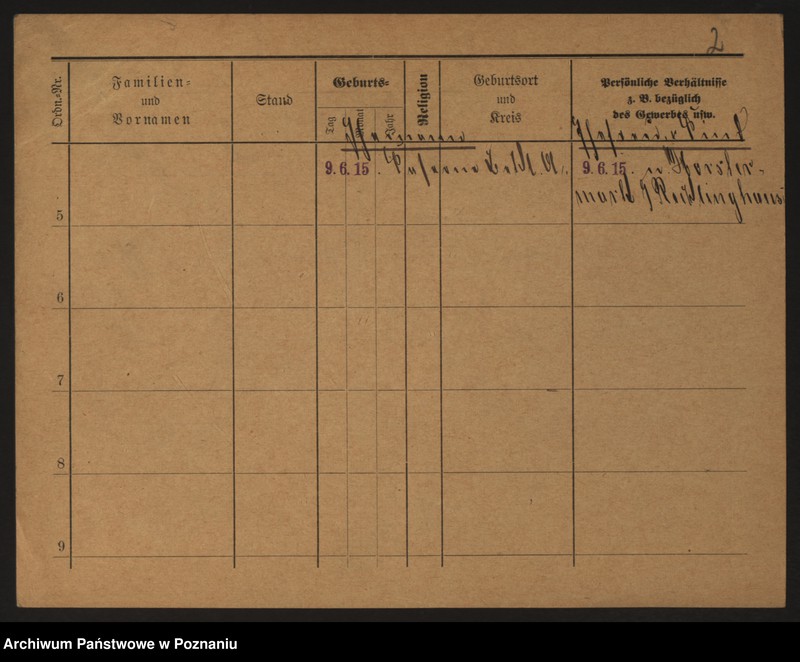 2
Ordn.-Nr.
Familien-
und
Vornamen
Stand
Geburts-
Tag
Monat
Jahr
Religion
Geburtsort
und
Kreis
Persönliche Verhältnisse
z. B. bezüglich
des Gewerbes usw.
Hermann
9.6.15.
9.6.15. n. Horster-
mark / Recklinghaus
5
6
7
8
9
Archiwum Państwowe w Poznaniu